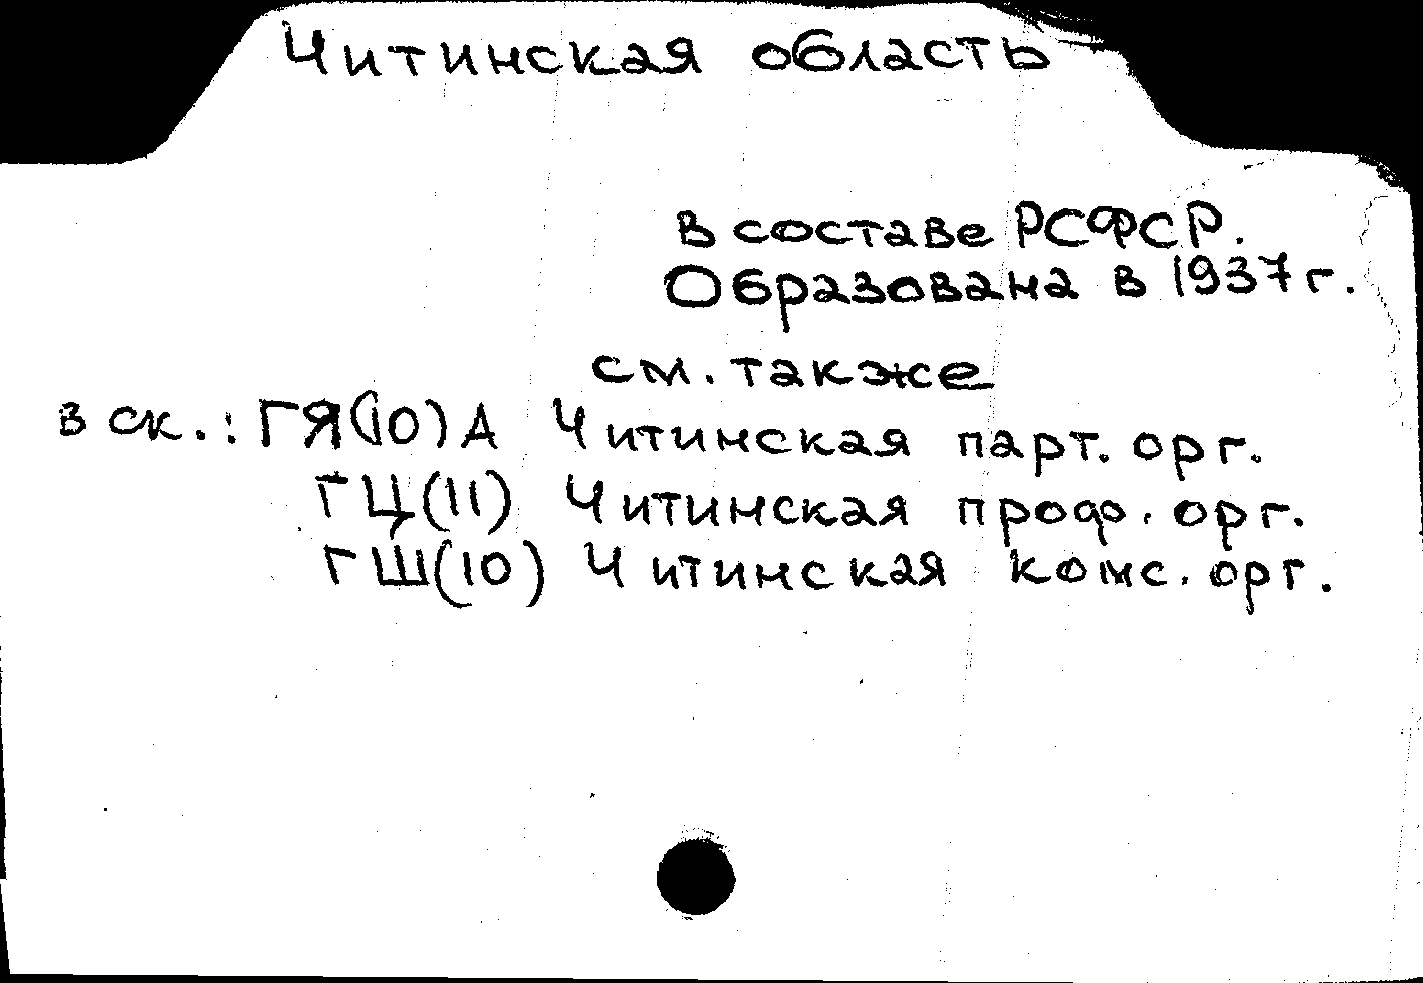 Читинская область
В составе РСФСР.
Образована в 1937 г.
см. также
в ск.: ГЯ(10)А Читинская парт. орг.
ГЦ(11) Читинская проф. орг.
ГШ(10) Читинская комс. орг.